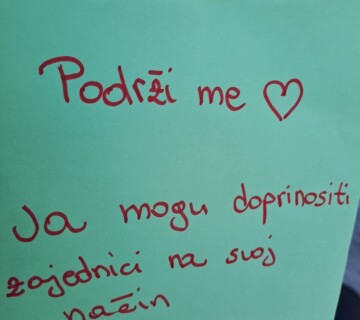 Podrži me ♡
Ja mogu doprinositi
zajednici na svoj
način